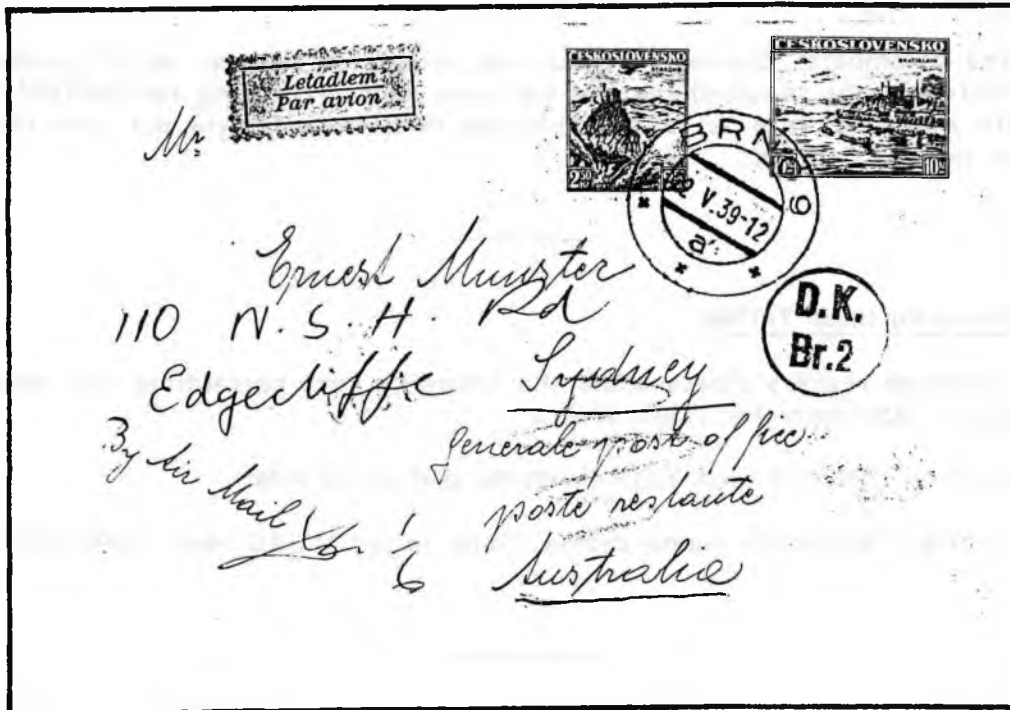 Letadlem
Par avion
ČESKOSLOVENSKO
2 50
ČESKOSLOVENSKO
BRATISLAVA
10 Kčs 10h
BRNO 9
2 V.39-12
a
D.K.
Br.2
Mr.
Ernest Munster
110 N. S. H. Rd
Edgecliffe
Sydney
Generale post office
poste restante
Australia
By Air Mail
6